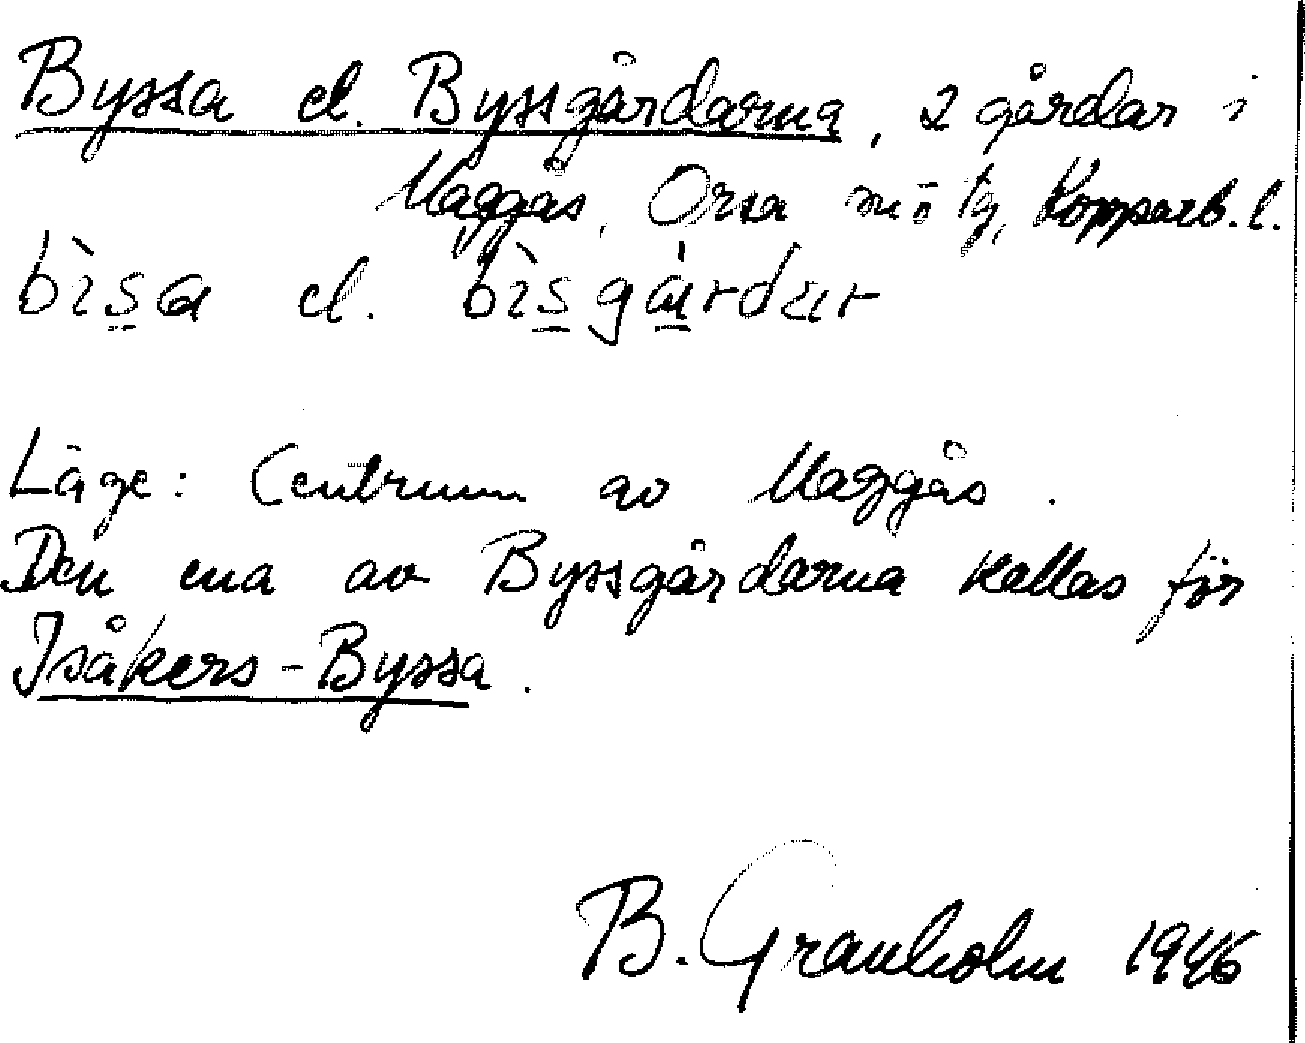 Byssa el. Byssgårdarna, 2 gårdar i
Maggås, Orsa sn ö tg, Kopparb. l.
bìsa el. bìsgárdar
Läge: Centrum av Maggås.
Den ena av Byssgårdarna kallas för
Isåkers-Byssa.
B. Granholm 1946